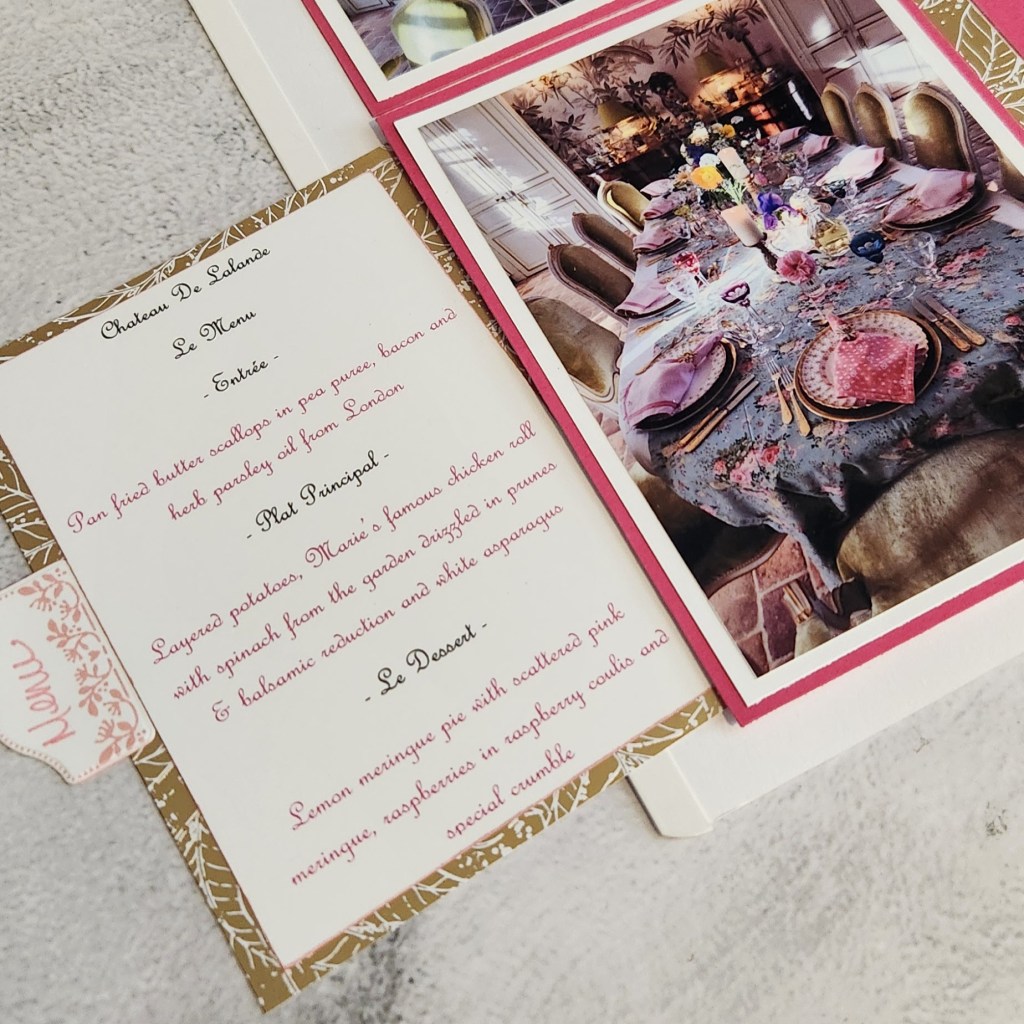 Chateau De Lalande
Le Menu
- Entrée -
Pan fried butter scallops in pea puree, bacon and
herb parsley oil from London
- Plat Principal -
Layered potatoes, Marie's famous chicken roll
with spinach from the garden drizzled in prunes
& balsamic reduction and white asparagus
- Le Dessert -
Lemon meringue pie with scattered pink
meringue, raspberries in raspberry coulis and
special crumble
Menu